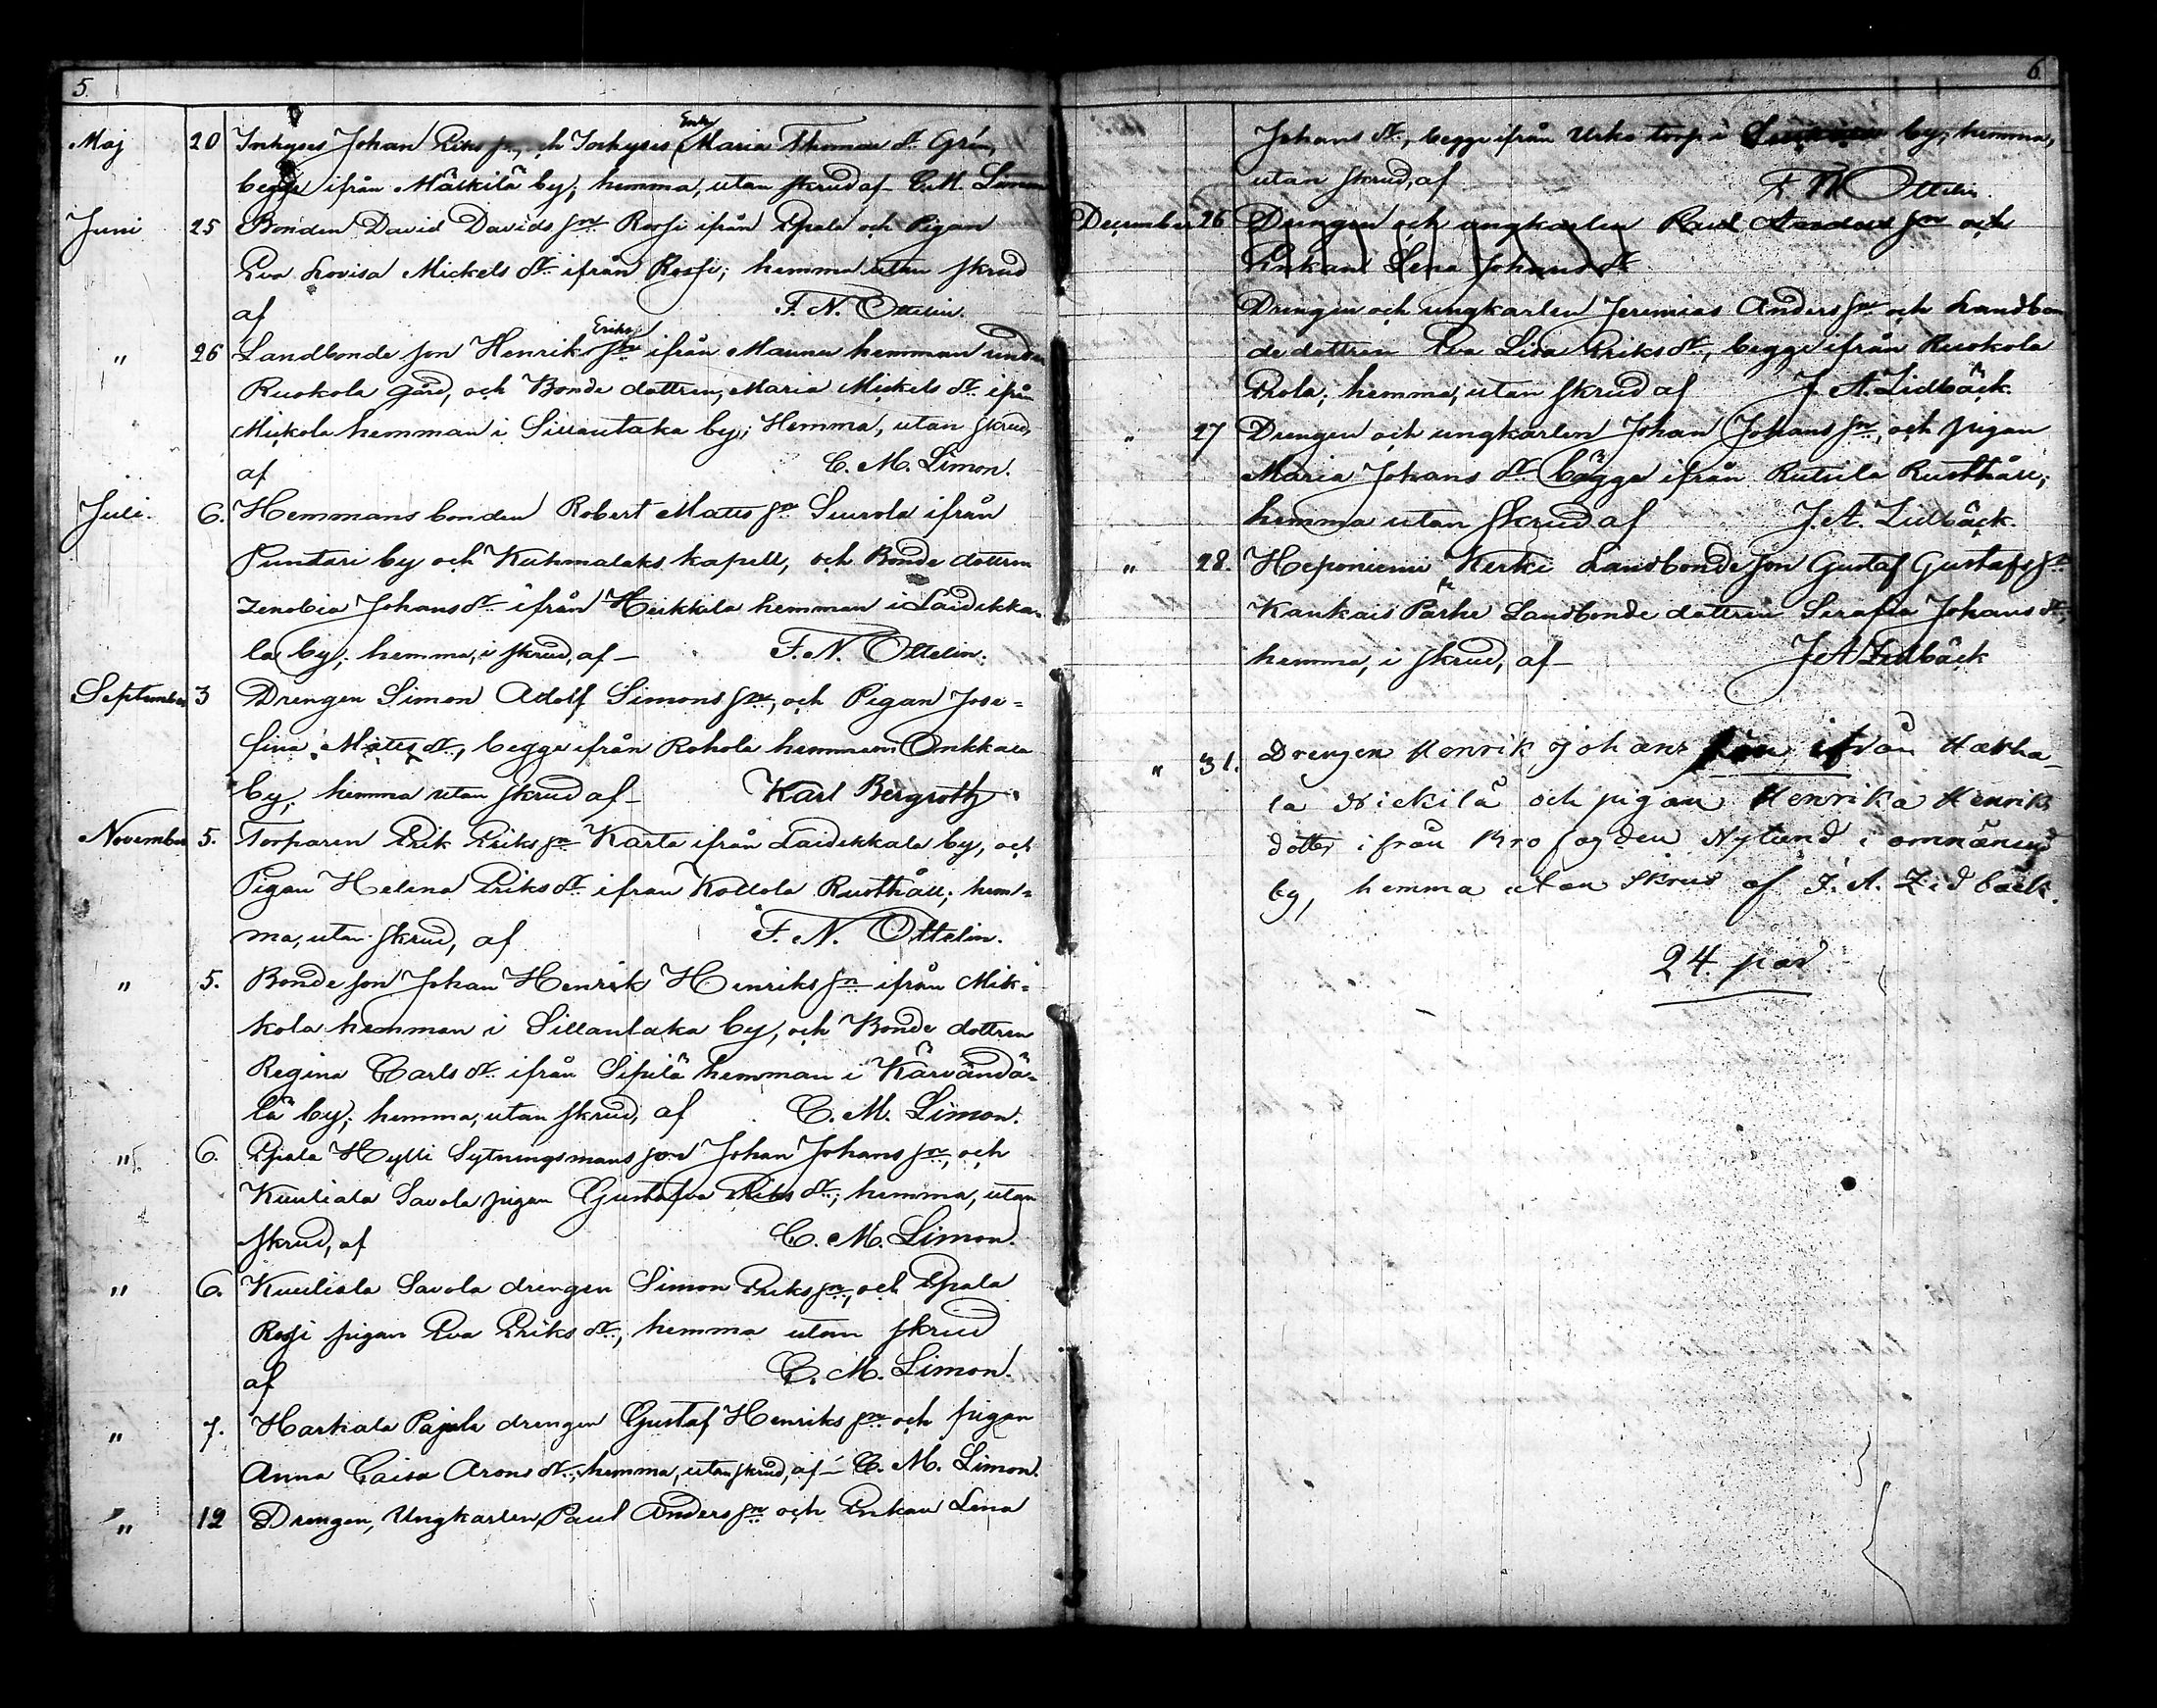 5.
Maj 20 Inhyses Johan Eriks sn, och Inhyses Enk. Maria Thomae dr. Grén,
begge ifrån Mäskilä by; hemma, utan skrud af C. M. Limon
Juni 25 Bonden David Davids sn Rossi ifrån Epala och Pigan
Eva Lovisa Mickels dr. ifrån Rossi; hemma utan skrud
af F. N. Ottelin.
" 26 Landbonde son Henrik Eriks sn ifrån Maunu hemman under
Ruokola gård, och Bonde dottren, Maria Mickels dr. ifrån
Mickola hemman i Sillantaka by; Hemma, utan skrud,
af C. M. Limon.
Juli. 6. Hemmans bonden Robert Matts sn Seurola ifrån
Puntari by och Kuhmalaks kapell, och Bonde dottren
Zenobia Johans dr. ifrån Heikkila hemman i Laidikka-
la by; hemma, i skrud, af – F. N. Ottelin.
September 3 Drengen Simon Adolf Simons sn, och Pigan Jose=
fina Matts dr, begge ifrån Rohola hemman Onkkala
by; hemma utan skrud af – Karl Bergroth
November 5. Torparen Erik Eriks sn Karta ifrån Laidikkala by, och
Pigan Helena Eriks dr. ifrån Kollola Rusthåll; hem=
ma, utan skrud, af F. N. Ottelin.
" 5. Bonde son Johan Henrik Henriks sn ifrån Mik=
kola hemman i Sillantaka by, och Bonde dottren
Regina Carls dr. ifrån Sipilä hemman i Kärvändä=
lä by; hemma, utan skrud, af C. M. Limon.
" 6. Epala Hylli Sytningsmans son Johan Johans sn, och
Kuuliala Savola pigan Gustafva Eriks dr.; hemma, utan
skrud, af C. M. Limon.
" 6. Kuuliala Savola drengen Simon Eriks sn, och Epala
Rossi pigan Eva Eriks dr., hemma utan skrud
af C. M. Limon.
" 7. Harkiala Pajula drengen Gustaf Henriks sn och pigan
Anna Caisa Arons dr., hemma, utan skrud, af – C. M. Limon.
" 12 Drengen, Ungkarlen, Paul Anders sn och Enkan Lena
6.
Johans dr., begge ifrån Urko torp i by; hemma,
utan skrud, af F. N. Ottelin.
December 26 Drengen och ungkarlen Paul Anders sn och
Enkan Lena Johans dr
Drengen och ungkarlen Jeremias Anders sn och Landbon
dedottren Eva Lisa Eriks dr., begge ifrån Ruokola
Erola; hemma, utan skrud af J. A. Lidbäck.
" 27 Drengen och ungkarlen Johan Johans sn, och pigan
Maria Johans dr. bägge ifrån Rutula Rusthåll;
hemma utan skrud af J. A. Lidbäck.
" 28. Heponiemi Kerki Landbonde son Gustaf Gustafs sn
Kankais Pärhe Landbonde dottren Serafia Johans dr.;
hemma, i skrud, af – J A Lidbäck
" 31. Drengen Henrik Johans son ifrån Harha-
la Nickilä och pigan Henrika Henriks
dotter ifrån Bro fogden Nylund i
by, hemma utan skrud af J. A. Lidbäck.
24 par